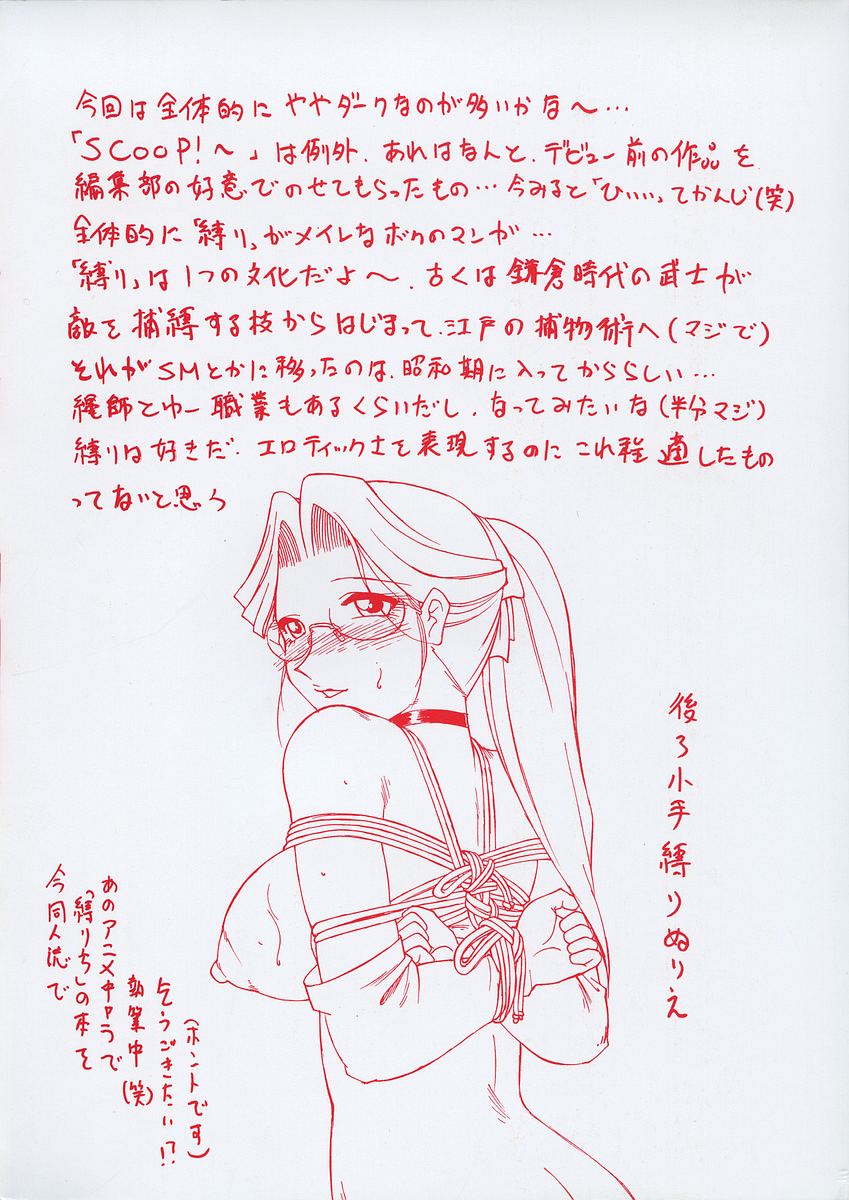 今回は全体的に ややダークなのが多いかな〜…
「SCOOP!〜」は例外．あれはなんと．デビュー前の作品を
編集部の好意でのせてもらったもの…今みると「ひぃぃ」てかんじ(笑)
全体的に「縛り」がメイレなボクのマンガ…
「縛り」は1つの文化だよ〜．古くは鎌倉時代の武士が
敵を捕縛する技からはじまって．江戸の捕物術へ(マジで)
それがSMとかに移ったのは．昭和期に入ってかららしい…
縄師とゆー職業もあるくらいだし．なってみたいな(半分マジ)
縛りは好きだ．エロティック士を表現するのにこれ程適したもの
ってないと思う
後ろ小手縛りぬりえ
今同人流で
「縛りちし」の本を
あのアニメキャラで
執筆中(笑)
乞うごきたい!?
(ホントです)